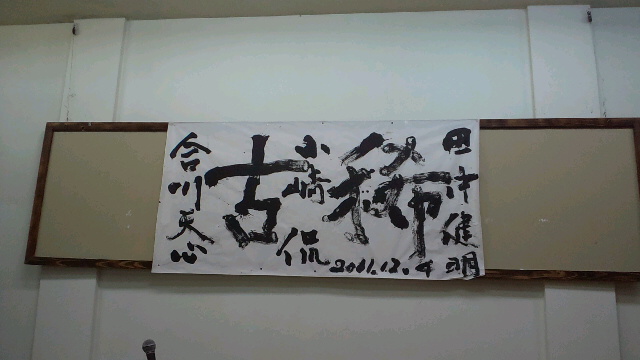 田中健明
古稀
小崎侃
合川天心
2011.12.4